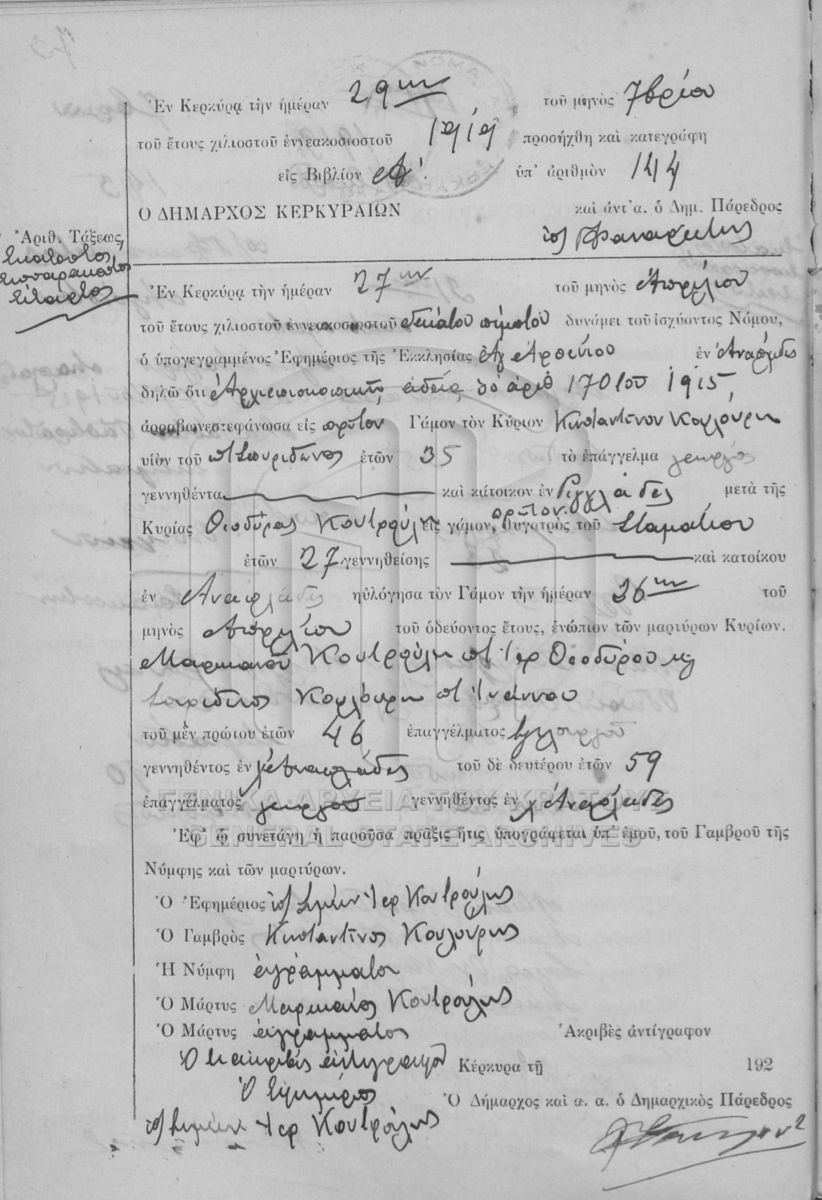 Ἐν Κερκύρᾳ τὴν ἡμέραν 29ην τοῦ μηνὸς 7βρίου
τοῦ ἔτους χιλιοστοῦ ἐννεακοσιοστοῦ προσήχθη καὶ κατεγράφη
εἰς Βιβλίον ὑπ' ἀριθμὸν 144
Ο ΔΗΜΑΡΧΟΣ ΚΕΡΚΥΡΑΙΩΝ καὶ ἀντ'α. ὁ Δημ. Πάρεδρος
Ἀριθ. Τάξεως,
Ἑκατοστὸς
τεσσαρακοστὸς
τέταρτος
Ἐν Κερκύρᾳ τὴν ἡμέραν 27ην τοῦ μηνὸς Ἀπριλίου
τοῦ ἔτους χιλιοστοῦ ἐννεακοσιοστοῦ δεκάτου πέμπτου δυνάμει τοῦ ἰσχύοντος Νόμου,
ὁ ὑπογεγραμμένος Ἐφημέριος τῆς Ἐκκλησίας Ἁγ Ἀρσενίου ἐν
δηλῶ ὅτι Ἀρχιεπισκοπικῇ ἀδείᾳ ὑπ ἀριθ 170 1915
ἀρραβωνεστεφάνωσα εἰς πρῶτον Γάμον τὸν Κύριον Κωσταντῖνον Κουλούρη
υἱὸν τοῦ Σπυρίδωνος ἐτῶν 35 τὸ ἐπάγγελμα γεωργὸς
γεννηθέντα καὶ κάτοικον ἐν Ριγγλάδες μετὰ τῆς
πρῶτον
Κυρίας Θεοδώρας Κουτρούλη εἰς γάμον, θυγατρὸς τοῦ Σταματίου
ἐτῶν 27 γεννηθείσης καὶ κατοίκου
ἐν Αναπλάδες ηὐλόγησα τὸν Γάμον τὴν ἡμέραν 26ην τοῦ
μηνὸς Ἀπριλίου τοῦ ὁδεύοντος ἔτους, ἐνώπιον τῶν μαρτύρων Κυρίων.
Κουτρούλη Ἱερ Θεοδώρου
Κουλούρη Ἰωάννου
τοῦ μὲν πρώτου ἐτῶν 46 ἐπαγγέλματος γεωργοῦ
γεννηθέντος ἐν Αναπλάδες τοῦ δὲ δευτέρου ἐτῶν 59
ἐπαγγέλματος γεωργοῦ γεννηθέντος ἐν Αναπλάδες
ΓΕΝΙΚΑ ΑΡΧΕΙΑ ΤΟΥ ΚΡΑΤΟΥΣ
GENERAL STATE ARCHIVES
Ἐφ' ᾧ συνετάγη ἡ παροῦσα πρᾶξις ἥτις ὑπογράφεται ὑπ' ἐμοῦ, τοῦ Γαμβροῦ τῆς
Νύμφης καὶ τῶν μαρτύρων.
Ὁ Ἐφημέριος Ἱερ Κουτρούλης
Ὁ Γαμβρὸς Κωσταντῖνος Κουλούρης
Ἡ Νύμφη ἀγράμματος
Ὁ Μάρτυς Κουτρούλης
Ὁ Μάρτυς ἀγράμματος Ἀκριβὲς ἀντίγραφον
Κέρκυρα τῇ 192
Ὁ Ἐφημέριος Ὁ Δήμαρχος καὶ α. α. ὁ Δημαρχικὸς Πάρεδρος
Ἱερ Κουτρούλης